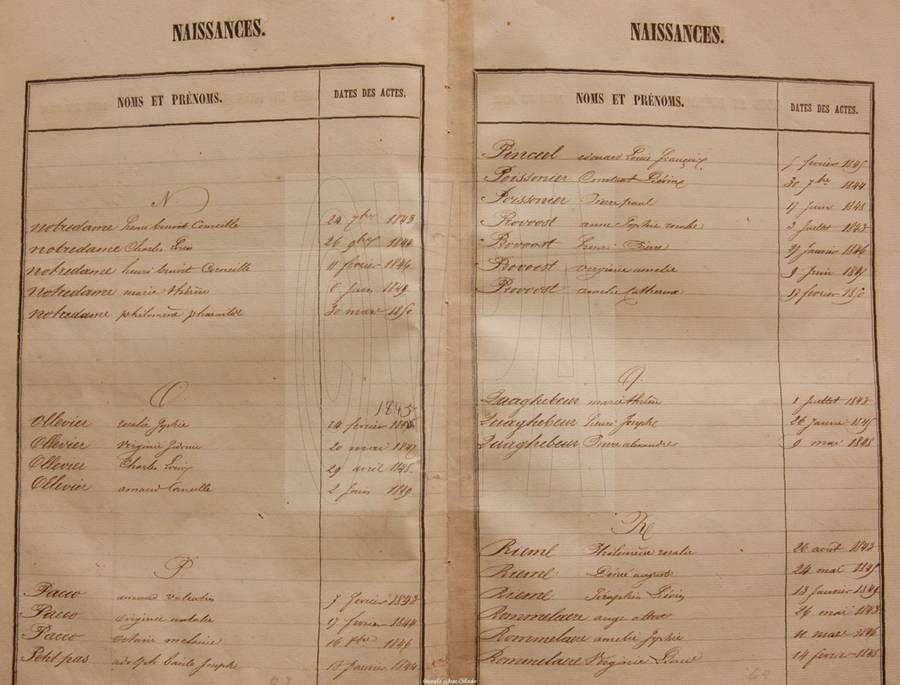 NAISSANCES.
NOMS ET PRÉNOMS. DATES DES ACTES.
N
notredame henri benoit Corneille 24 7bre 1843
notredame Charles Louis 26 9bre 1844
notredame henri benoit Corneille 11 février 1846
notredame marie thérèse 6 juin 1849
notredame philomène 30 mars 1850
O
1845
Ollevier rosalie Sophie 24 février
Ollevier Virginie 20 mai 1847
Ollevier Charles Louis 29 avril 1848
Ollevier amand Corneille 2 juin 1849
P
Pacco amand valentin 7 février 1843
Pacco virginie natalie 17 février 1844
Pacco octavie melanie 16 1846
Petit pas adolph Carile Josephe 18 janvier 1844
NAISSANCES.
NOMS ET PRÉNOMS. DATES DES ACTES.
Pinceel edouard Louis françois 5 février 1845
Poissonier Constant 30 7bre 1844
Poissonier Pierre paul 17 juin 1848
Provoost anne Sophie rosalie 2 juillet 1843
Provoost henri 27 janvier 1846
Provoost virginie amelie 9 juin 1847
Provoost amelie catherine 17 février 1850
Q
Quaghebeur marie thérèse 1 juillet 1843
Quaghebeur henri Josephe 26 janvier 1845
Quaghebeur Pierre alexandre 9 mai 1848
R
Rieme Philomène rosalie 26 août 1843
Rieme Désiré auguste 24 mai 1845
Rieme Séraphin 18 janvier 1849
Rommelaere ange 26 mai 1843
Rommelaere amelie Sophie 11 mars 1846
Rommelaere Virginie 14 février 1848